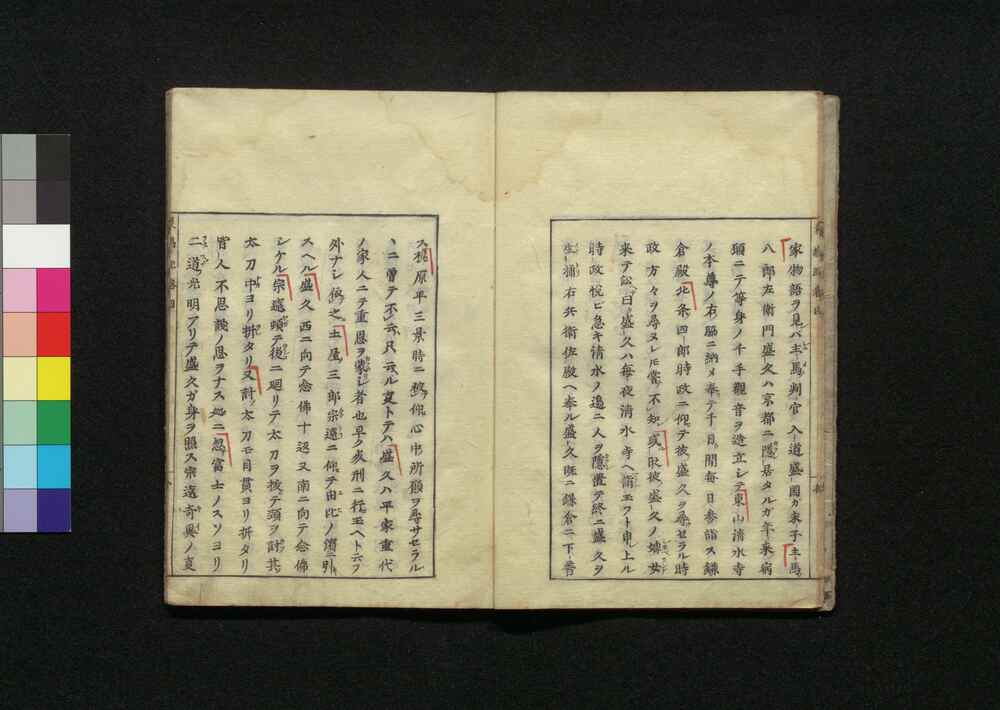 家物語ヲ見バ主馬判官入道盛国カ末子主馬
八郎左衛門盛久ハ京都ニ隠居タルガ年来病
願ニテ等身ノ千手観音ヲ造立シテ東山清水寺
ノ本尊ノ右脇ニ納メ奉テ千日ノ間毎日参詣ス鎌
倉殿北条四郎時政ニ仰テ彼盛久ヲ尋セラル時
政方々ヲ尋ヌレ𪜈嘗不知或時彼盛久ノ
来テ訟曰盛久ハ毎夜清水寺ヘ詣玉フト申上ル
時政悦ビ急キ清水ノ邉ニ人ヲ隠置テ終ニ盛久ヲ
生捕右兵衛佐殿ヘ奉ル盛久既ニ鎌倉ニ下着
ス梶原平三景時ニ仰心中所願ヲ尋サセラル
ヽニ曽テ不云只云ル𫝆トテハ盛久ハ平家重代
ノ家人ニテ重恩ヲ蒙シ者也早ク死刑ニ行玉ヘト云フ
外ナシ依之土屋三郎宗遠ニ仰テ由比ノ濱ニ引
スヘル盛久西ニ向テ念佛十返又南ニ向テ念佛
シケル宗遠頓テ後ニ廻リテ太刀ヲ抜テ頭ヲ討共
太刀中ヨリ折タリ又討太刀モ目貫ヨリ折タリ
皆人不思議ノ思ヲナス処ニ忽富士ノスソヨリ
二道光明アリテ盛久ガ身ヲ照ス宗遠奇異ノ